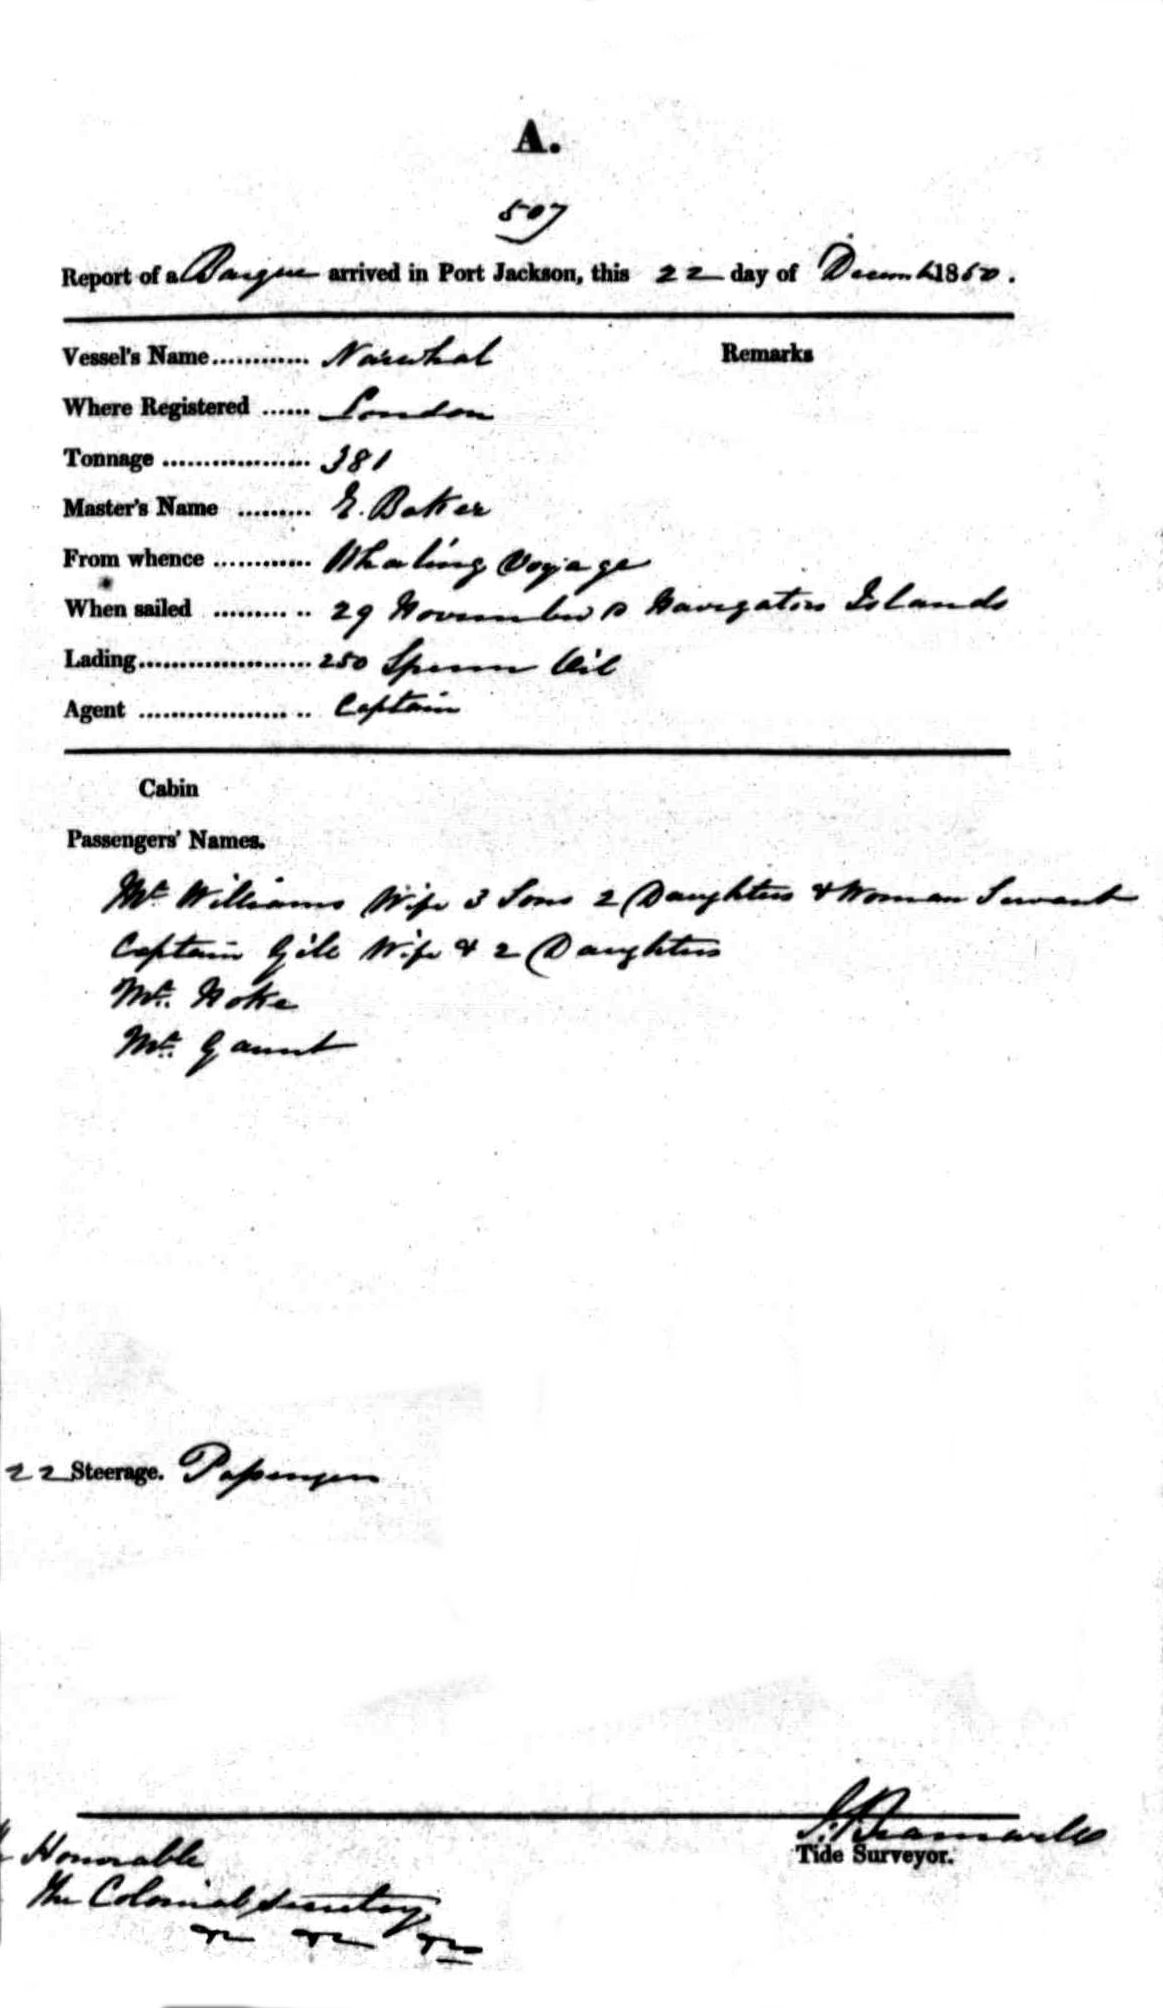 A.
507
Report of a Barque arrived in Port Jackson, this 22 day of Decemb 1850.
Vessel's Name............ Narwhal
Remarks
Where Registered ...... London
Tonnage .................. 381
Master's Name ......... E. Baker
From whence ............ Whaling Voyage
When sailed ......... .. 29 November Navigators Islands
Lading..................... 250 Sperm Oil
Agent .................. .. Captain
Cabin
Passengers' Names.
Mr Williams Wife 3 Sons 2 Daughters & Woman Servant
Captain Gill Wife & 2 Daughters
Mr. Hoke
Mr. Gaunt
22 Steerage. Passengers
Tide Surveyor.
Honorable
The Colonial Secretary